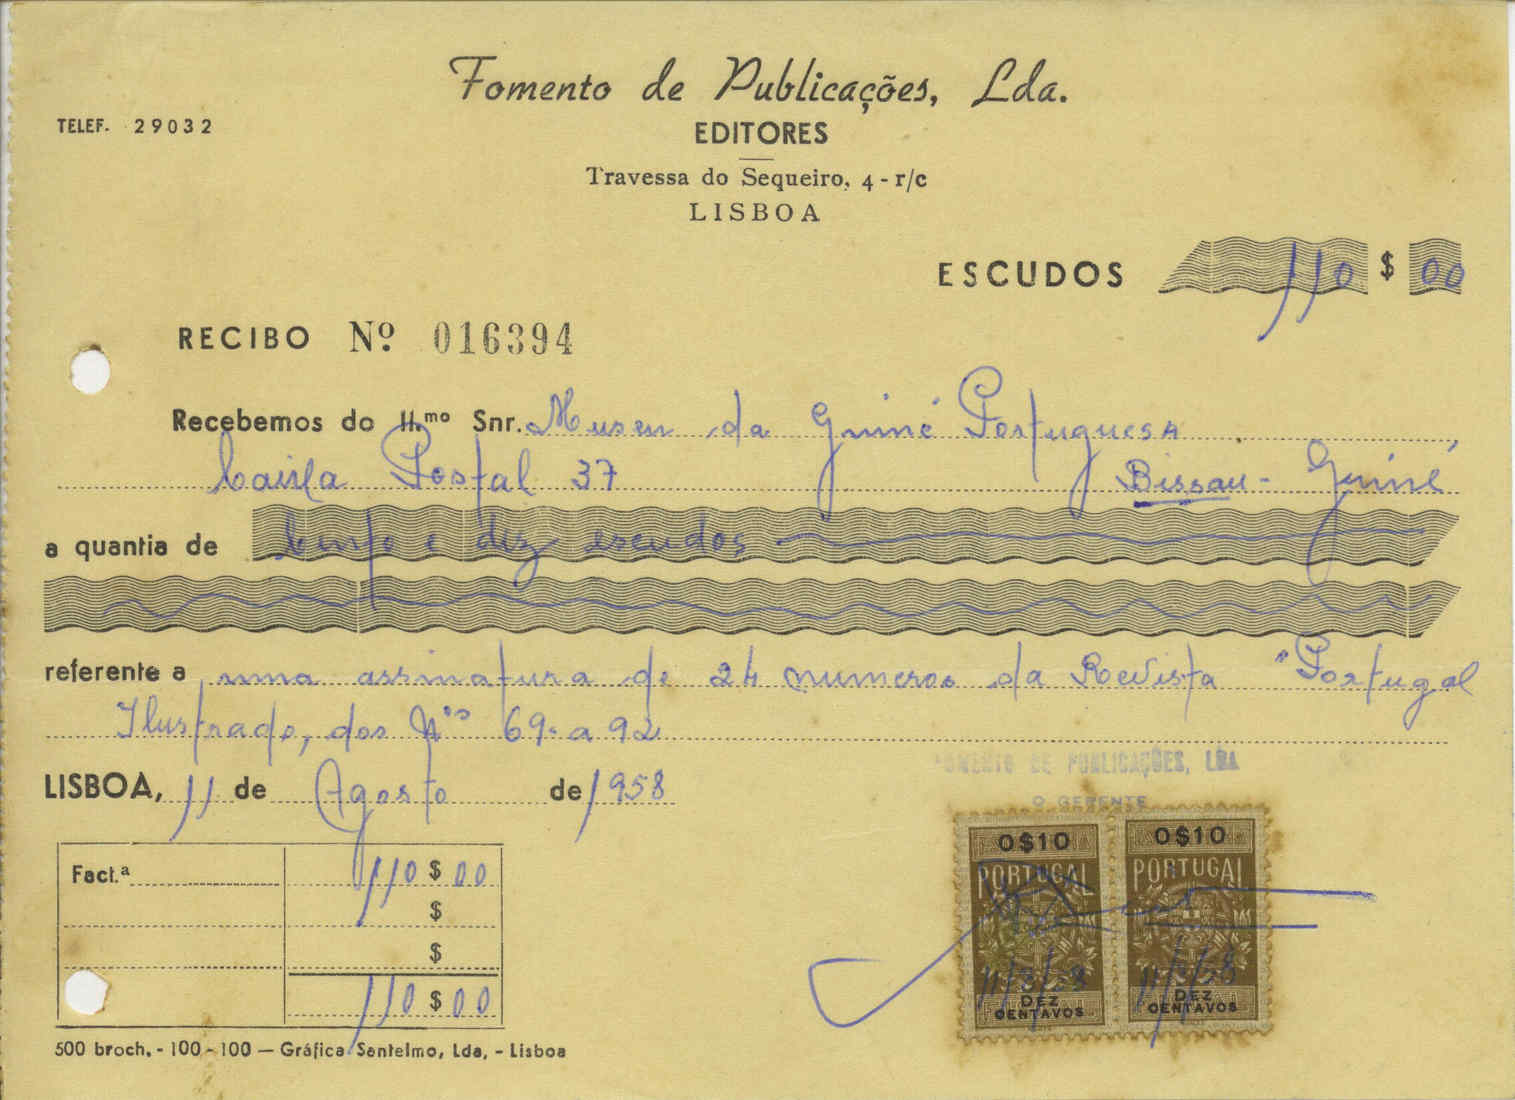 Fomento de Publicações, Lda.
TELEF. 29032
EDITORES
Travessa do Sequeiro, 4 - r/c
LISBOA
ESCUDOS 110 $ 00
RECIBO Nº 016394
Recebemos do Il.mo Snr. Museu da Guiné Portuguesa
Caixa Postal 37 Bissau - Guiné
a quantia de Cento e dez escudos
referente a uma assinatura de 24 numeros da Revista "Portugal
Ilustrado, dos Nºs 69 a 92
LISBOA, 11 de Agosto de 1958
FOMENTO DE PUBLICAÇÕES, LDA
O GERENTE
0$10 0$10
PORTUGAL PORTUGAL
11/8/58 11/8/58
DEZ CENTAVOS DEZ CENTAVOS
Fact.ª 110 $ 00
$
$
110 $ 00
500 broch. - 100 - 100 — Gráfica Santelmo, Lda, - Lisboa